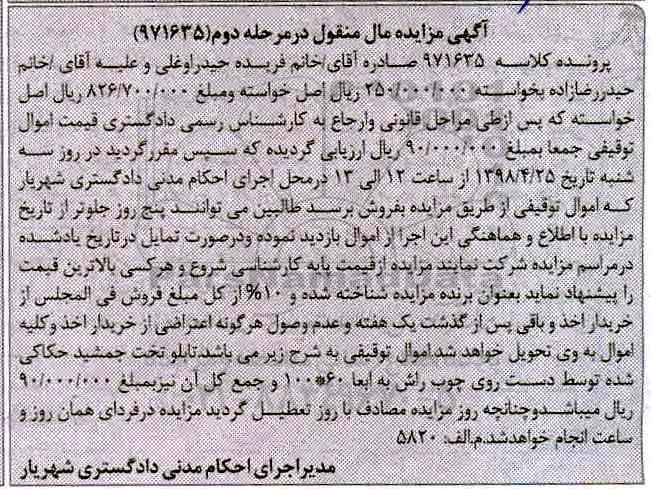 آگهی مزایده مال منقول در مرحله دوم(۹۷۱۶۳۵)
پرونده کلاسه ۹۷۱۶۳۵ صادره آقای/خانم فریده حیدراوغلی و علیه آقای /خانم
حیدررضازاده بخواسته ۲۵۰/۰۰۰/۰۰۰ ریال اصل خواسته ومبلغ ۸۲۶/۷۰۰/۰۰۰ ریال اصل
خواسته که پس ازطی مراحل قانونی وارجاع به کارشناس رسمی دادگستری قیمت اموال
توقیفی جمعا بمبلغ ۹۰/۰۰۰/۰۰۰ ریال ارزیابی گردیده که سپس مقررگردید در روز سه
شنبه تاریخ ۱۳۹۸/۴/۲۵ از ساعت ۱۲ الی ۱۳ درمحل اجرای احکام مدنی دادگستری شهریار
که اموال توقیفی از طریق مزایده بفروش برسد طالبین می توانند پنج روز جلوتر از تاریخ
مزایده با اطلاع و هماهنگی این اجرا از اموال بازدید نموده ودرصورت تمایل درتاریخ یادشده
درمراسم مزایده شرکت نمایند مزایده ازقیمت پایه کارشناسی شروع و هرکسی بالاترین قیمت
را پیشنهاد نماید بعنوان برنده مزایده شناخته شده و ۱۰% از کل مبلغ فروش فی المجلس از
خریدار اخذ و باقی پس از گذشت یک هفته و عدم وصول هرگونه اعتراضی از خریدار اخذ وکلیه
اموال به وی تحویل خواهد شد.اموال توقیفی به شرح زیر می باشد.تابلو تخت جمشید حکاکی
شده توسط دست روی چوب راش به ابعا ۶۰*۱۰۰ و جمع کل آن نیزبمبلغ ۹۰/۰۰۰/۰۰۰
ریال میباشدوچنانچه روز مزایده مصادف با روز تعطیل گردید مزایده درفردای همان روز و
ساعت انجام خواهدشد.م.الف: ۵۸۲۰
مدیراجرای احکام مدنی دادگستری شهریار